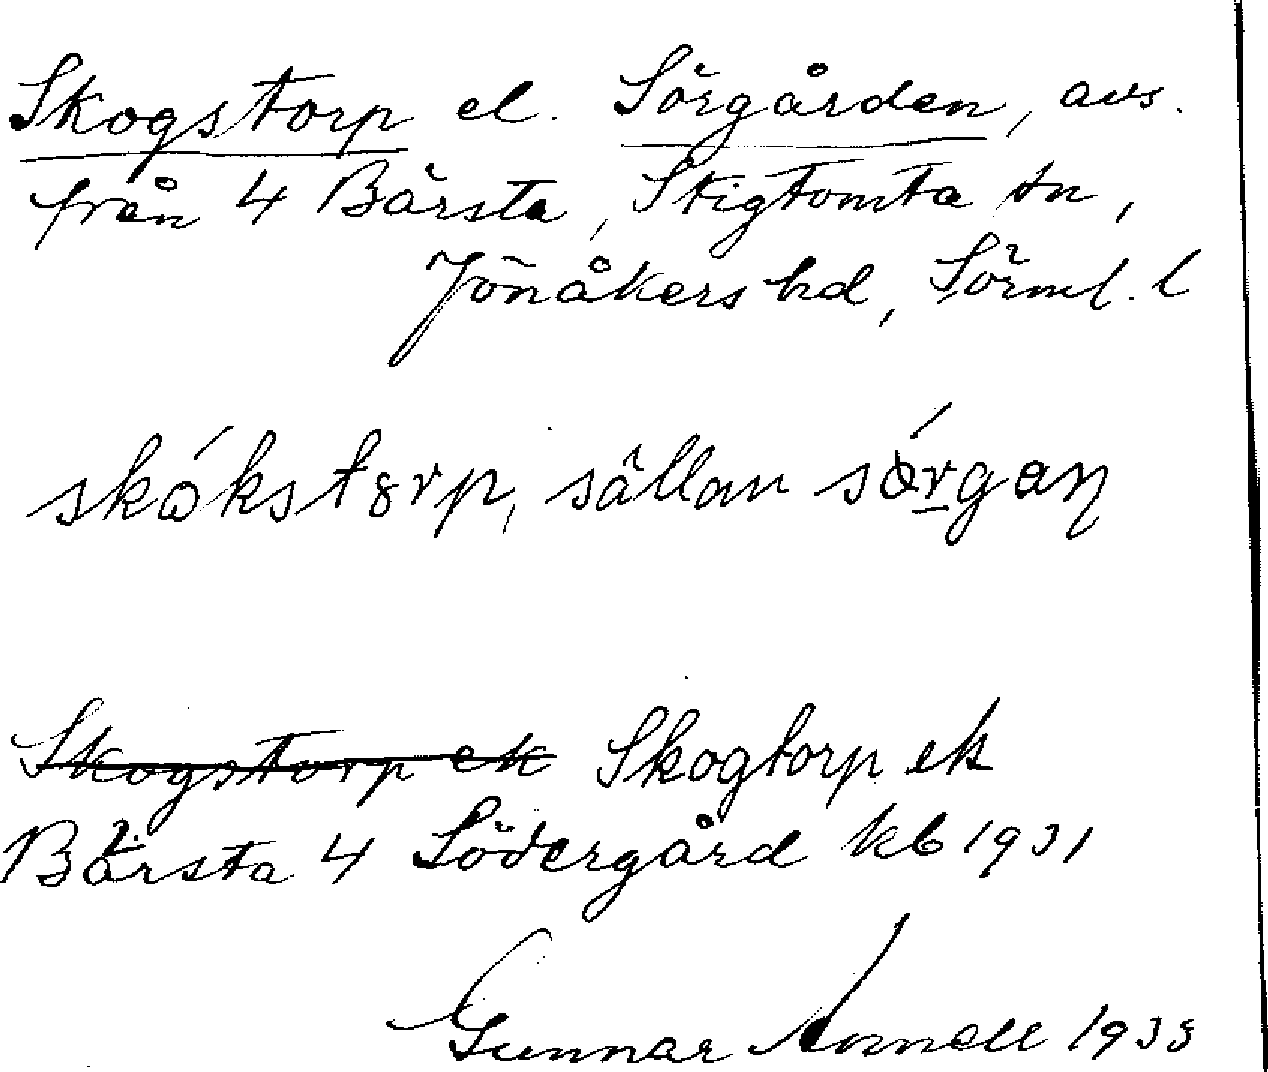 Skogstorp el. Sörgården, avs.
från 4 Bärsta, Stigtomta sn,
Jönåkers hd, Sörml. l
skókstorp, sällan
Skogstorp ek Skogtorp ek
Bärsta 4 Södergård kb 1931
Gunnar 1938